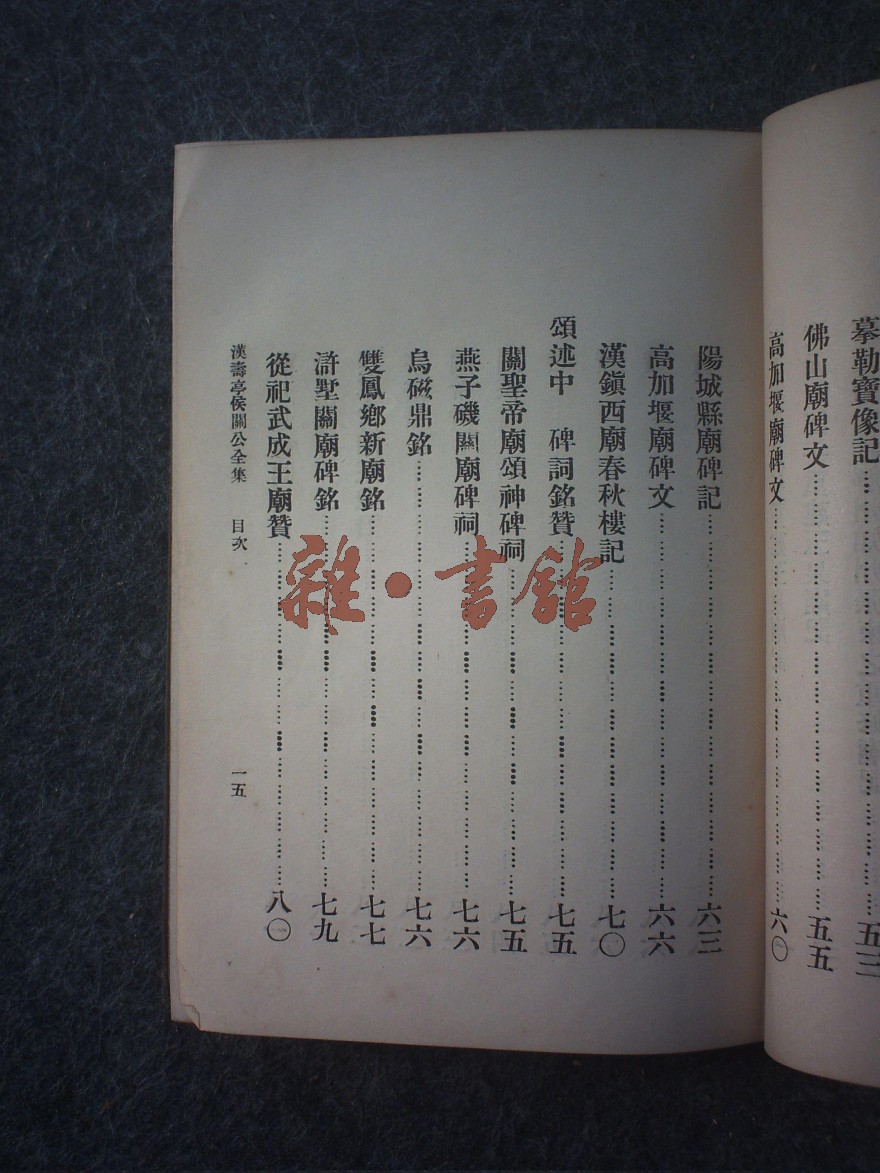 摹勒寶像記……五三
佛山廟碑文……五五
高加堰廟碑文……六〇
陽城縣廟碑記……六三
高加堰廟碑文……六六
漢鎭西廟春秋樓記……七〇
頌述中 碑詞銘贊……七五
關聖帝廟頌神碑祠……七五
燕子磯關廟碑祠……七六
烏磁鼎銘……七六
雙鳳鄉新廟銘……七七
滸墅關廟碑銘……七九
從祀武成王廟贊……八〇
漢壽亭侯關公全集 目次 一五
雜·書館